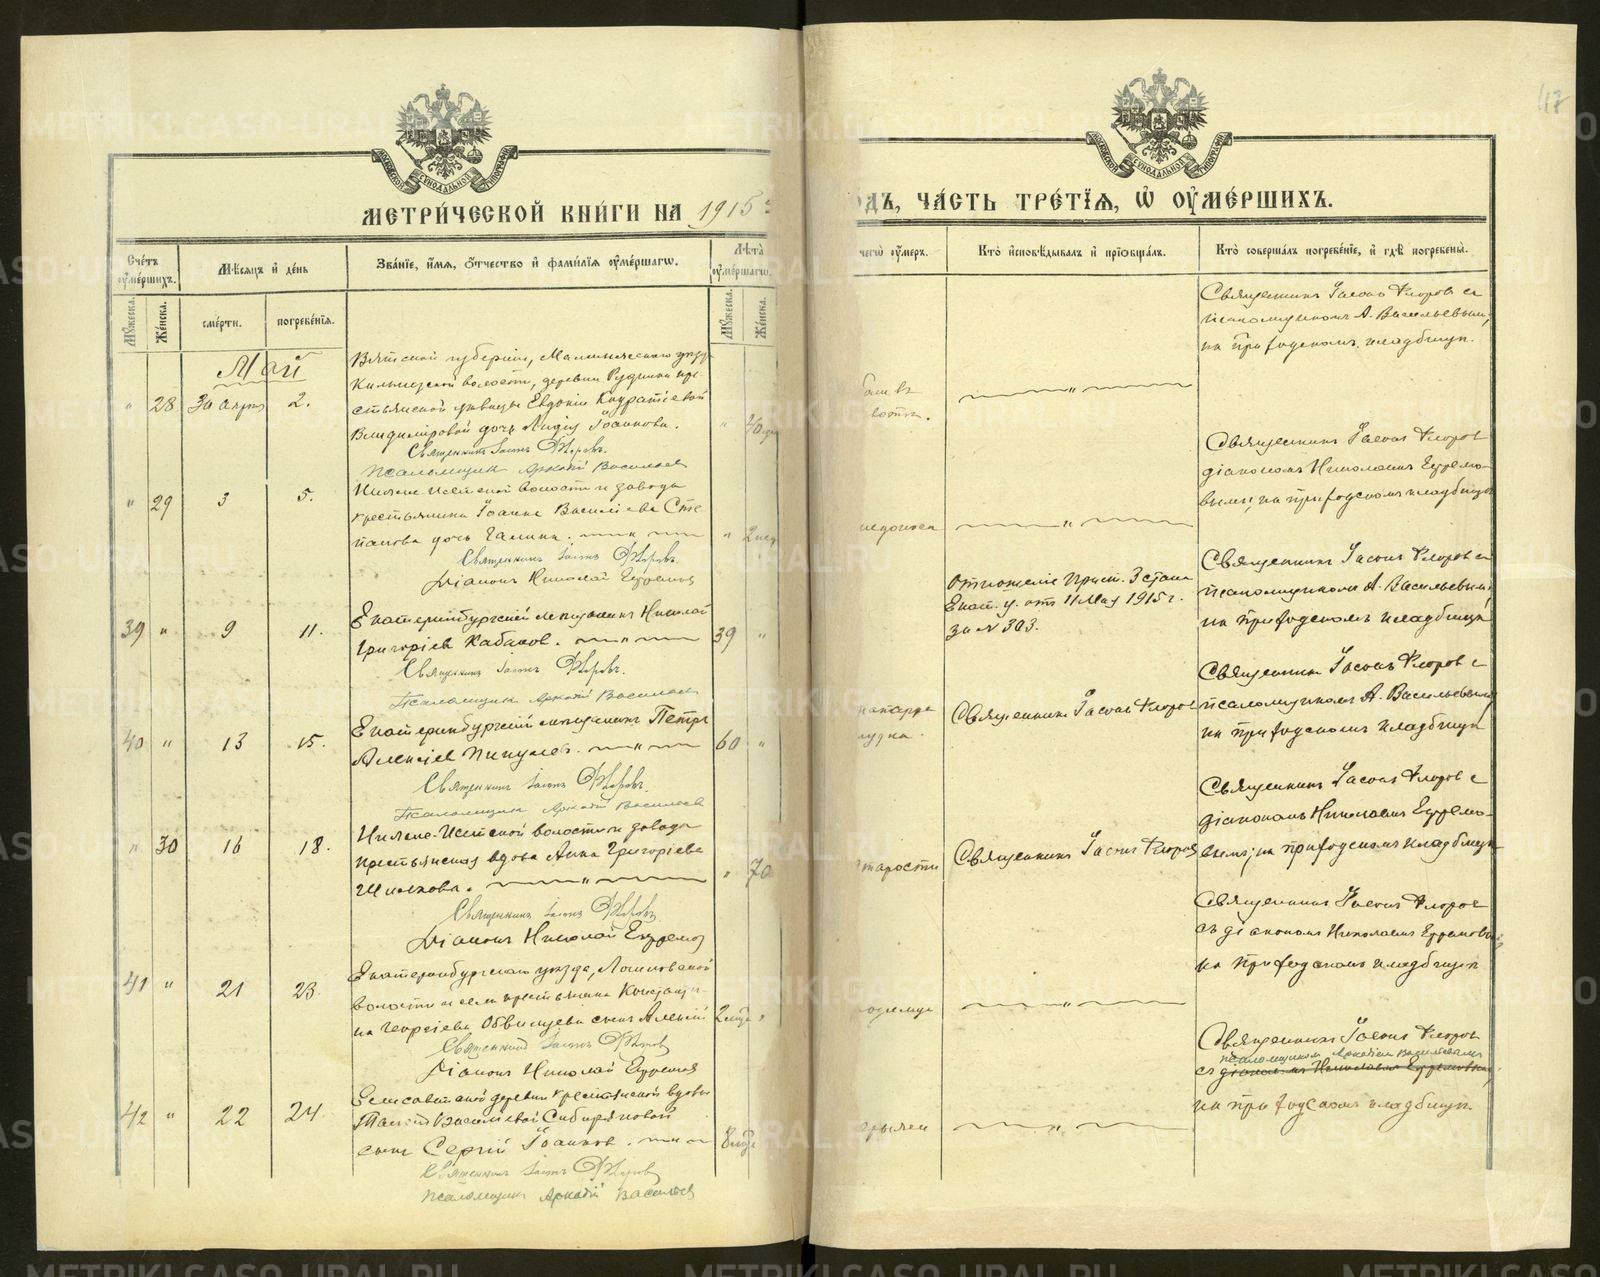 47
МОСКОВСКОЙ СѴНОДАЛЬНОЙ ТИПОГРАФІИ
МОСКОВСКОЙ СѴНОДАЛЬНОЙ ТИПОГРАФІИ
МЕТРИ́ЧЕСКОЙ КНИ́ГИ НА 1915
ОДЪ, ЧА́СТЬ ТРЕ́ТІѦ, Ѡ҆ ОУ҆МЕ́РШИХЪ.
Сче́тъ оу҆ме́ршихъ.
Мѣ́сяцъ и҆ де́нь
Зва́ніе, и҆́мѧ, ѻ҆́тчество и҆ фами́лїѧ оу҆ме́ршагѡ.
Лѣ́та оу҆ме́ршагѡ.
Мꙋ́жеска.
Же́нска.
сме́рти.
погребе́нїѧ.
Мꙋ́жеска.
Же́нска.
чегѡ̀ оу҆́меръ.
Кто̀ и҆сповѣ́дывалъ и҆ прїѡбща́лъ.
Кто̀ соверша́лъ погребе́нїе, и҆ гдѣ̀ погребены̀.
Май
" 28 30 апр 2.
Вятской губерніи, Малмыжскаго уѣзда
Кильмезской волости, деревни
стьянской дѣвицы Евдокіи Кодратіевой
Владиміровой дочь Лидія Іоаннова.
Священникъ Іасонъ Флоровъ.
Псаломщикъ Аркадій Васильевъ
" 40
Священникъ Іасонъ Флоровъ съ
псаломщикомъ А. Васильевымъ,
на приходскомъ кладбищѣ.
" 29 3 5.
Нижне-Исетской волости и завода
крестьянина Іоанна Василіева Сте
панова дочь Галина.
Священникъ Іасонъ Флоровъ
Діаконъ Николай Ефремовъ
" 2 нед
Священникъ Іасонъ Флоровъ
діакономъ Николаемъ Ефремо-
вымъ, на приходскомъ кладбищѣ
39 " 9 11.
Екатеринбургскій мѣщанинъ Николай
Григоріевъ Кабаковъ.
Священникъ Іасонъ Флоровъ.
Псаломщикъ Аркадій Васильевъ
39 "
Отношеніе Прист. 3 стана
Екат. у. отъ 11 Мая 1915 г.
за № 303.
Священникъ Іасонъ Флоровъ съ
псаломщикомъ А. Васильевымъ,
на приходскомъ кладбищѣ
40 " 13 15.
Екатеринбургскій мѣщанинъ Петръ
Алексіевъ Пикулевъ.
Священникъ Іасонъ Флоровъ.
Псаломщикъ Аркадій Васильевъ
60 "
Священникъ Іасонъ Флоровъ
Священникъ Іасонъ Флоровъ с
псаломщикомъ А. Васильевымъ,
на приходскомъ кладбищѣ
" 30 16 18.
Нижне-Исетской волости и завода
крестьянская вдова Анна Григоріева
Шилкова.
Священникъ Іасонъ Флоровъ
Діаконъ Николай Ефремовъ
" 70
старости
Священникъ Іасонъ Флоровъ
Священникъ Іасонъ Флоровъ с
діакономъ Николаемъ Ефремо-
вымъ, на приходскомъ кладбищѣ
41 " 21 23.
Екатеринбургскаго уѣзда,
волости и села крестьянина Константи-
на Георгіева Обвинцева сынъ Алексій
Священникъ Іасонъ Флоровъ
Діаконъ Николай Ефремовъ
2 мѣс "
Священникъ Іасонъ Флоровъ
съ діакономъ Николаемъ Ефремовымъ
на приходскомъ кладбищѣ
42 " 22 24.
Елисаветской деревни крестьянской вдовы
Таисіи Василіевой Сибиряковой
сынъ Сергій Іоанновъ.
Священникъ Іасонъ Флоровъ
Псаломщикъ Аркадій Васильевъ
8 мѣс
грыжи
Священникъ Іасонъ Флоровъ
псаломщикомъ Аркадіемъ Васильевымъ
съ діакономъ Николаемъ Ефремовымъ,
на приходскомъ кладбищѣ.
METRIKI.GASO-URAL.RU